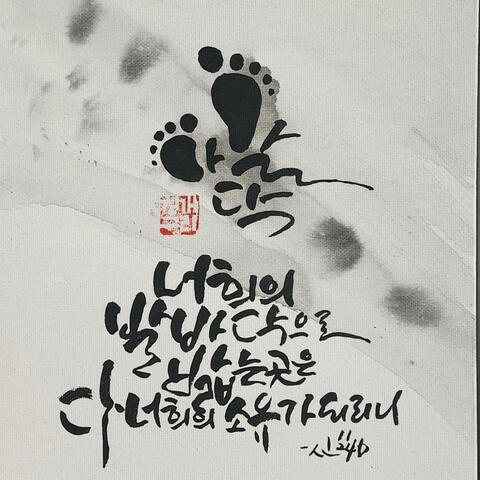 발바닥
너희의
발바닥으로
밟는곳은
다 너희의 소유가되리니
-신11:24b